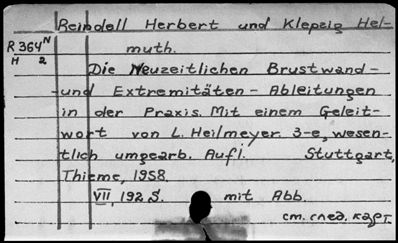 Reindell Herbert und Klepzig Hel-
R 364 N
muth.
H 2
Die Neuzeitlichen Brustwand-
und Extremitäten - Ableitungen
in der Praxis. Mit einem Geleit-
wort von L. Heilmeyer. 3-e, wesen-
tlich umgearb. Aufl. Stuttgart,
Thieme, 1958.
VII, 192 S. mit Abb.
см. след. карт.